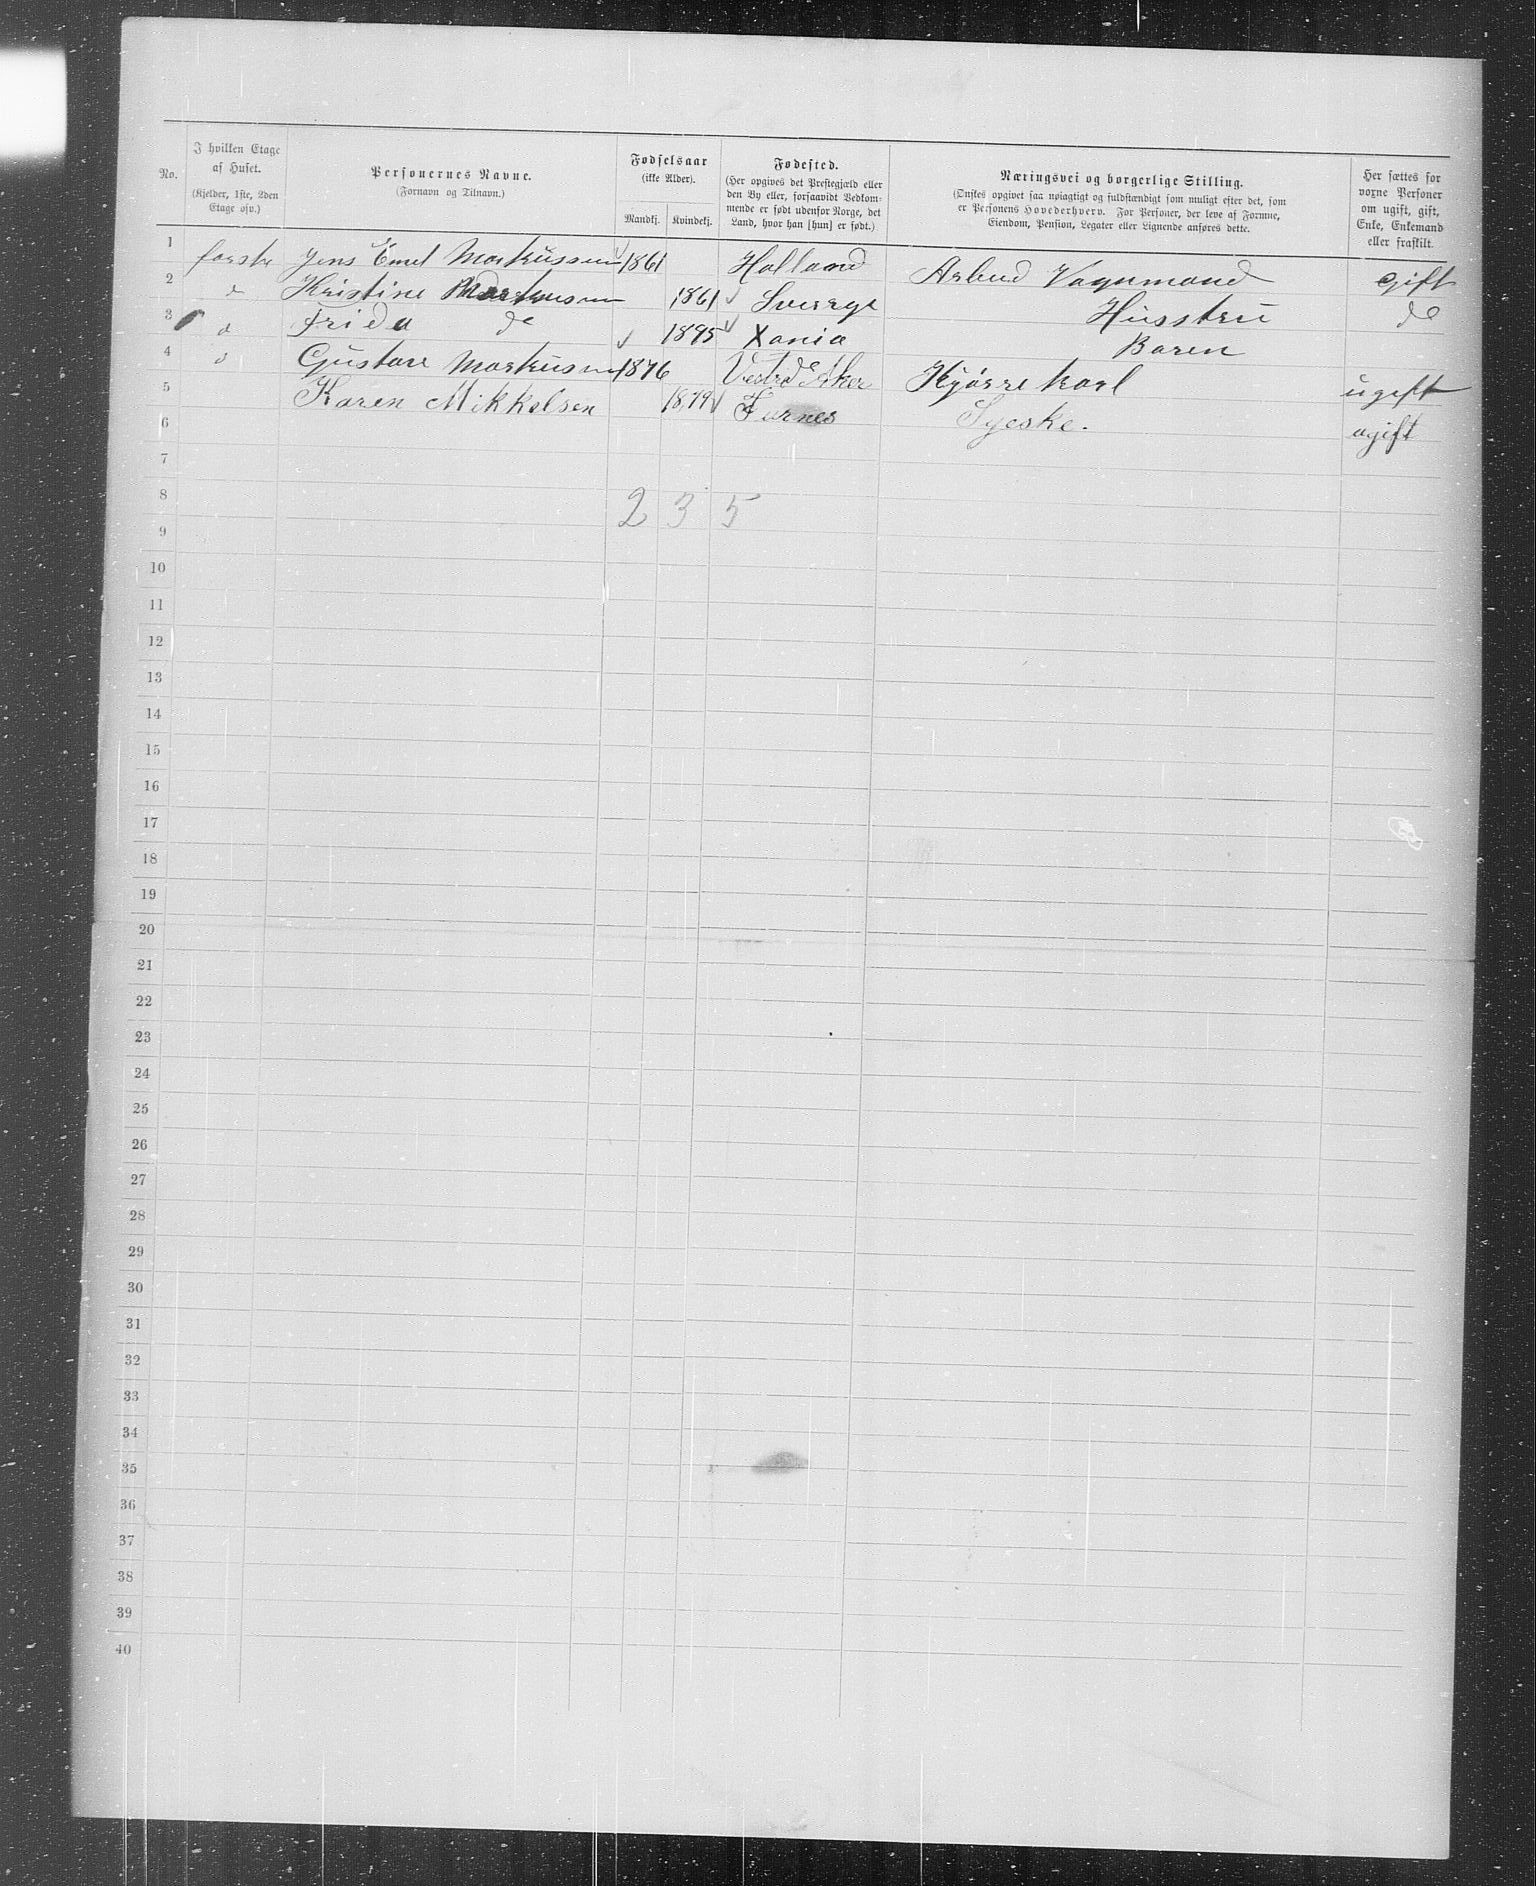 No. | I hvilken Etage af Huset. (Kjelder, 1ste, 2den Etage osv.) | Personernes Navne. (Fornavn og Tilnavn.) | Fødselsaar (ikke Alder). Mandkj. | Kvindekj. | Fødested. (Her opgives det Prestegjæld eller den By eller, forsaavidt Vedkommende er født udenfor Norge, det Land, hvor han [hun] er født.) | Næringsvei og borgerlige Stilling. (Ønskes opgivet saa nøiagtigt og fuldstændigt som muligt efter det, som er Personens Hovederhverv. For Personer, der leve af Formue, Eiendom, Pension, Legater eller Lignende anføres dette. | Her sættes for voxne Personer om ugift, gift, Enke, Enkemand eller fraskilt.
1 første Jens Emel Markussen 1861 Holland Arbud Vognmand gift
2 d Kristine Markusen 1861 Sverrge Hüsstrü do
3 d Frida do 1895 Xania Baren
4 d Gustave Markusen 1876 Vestre Aker Kjørrekarl ugift
5 Karen Mikkelsen 1879 Furnes Syeske. ugift
6
7
8 2 3 5
9
10
11
12
13
14
15
16
17
18
19
20
21
22
23
24
25
26
27
28
29
30
31
32
33
34
35
36
37
38
39
40